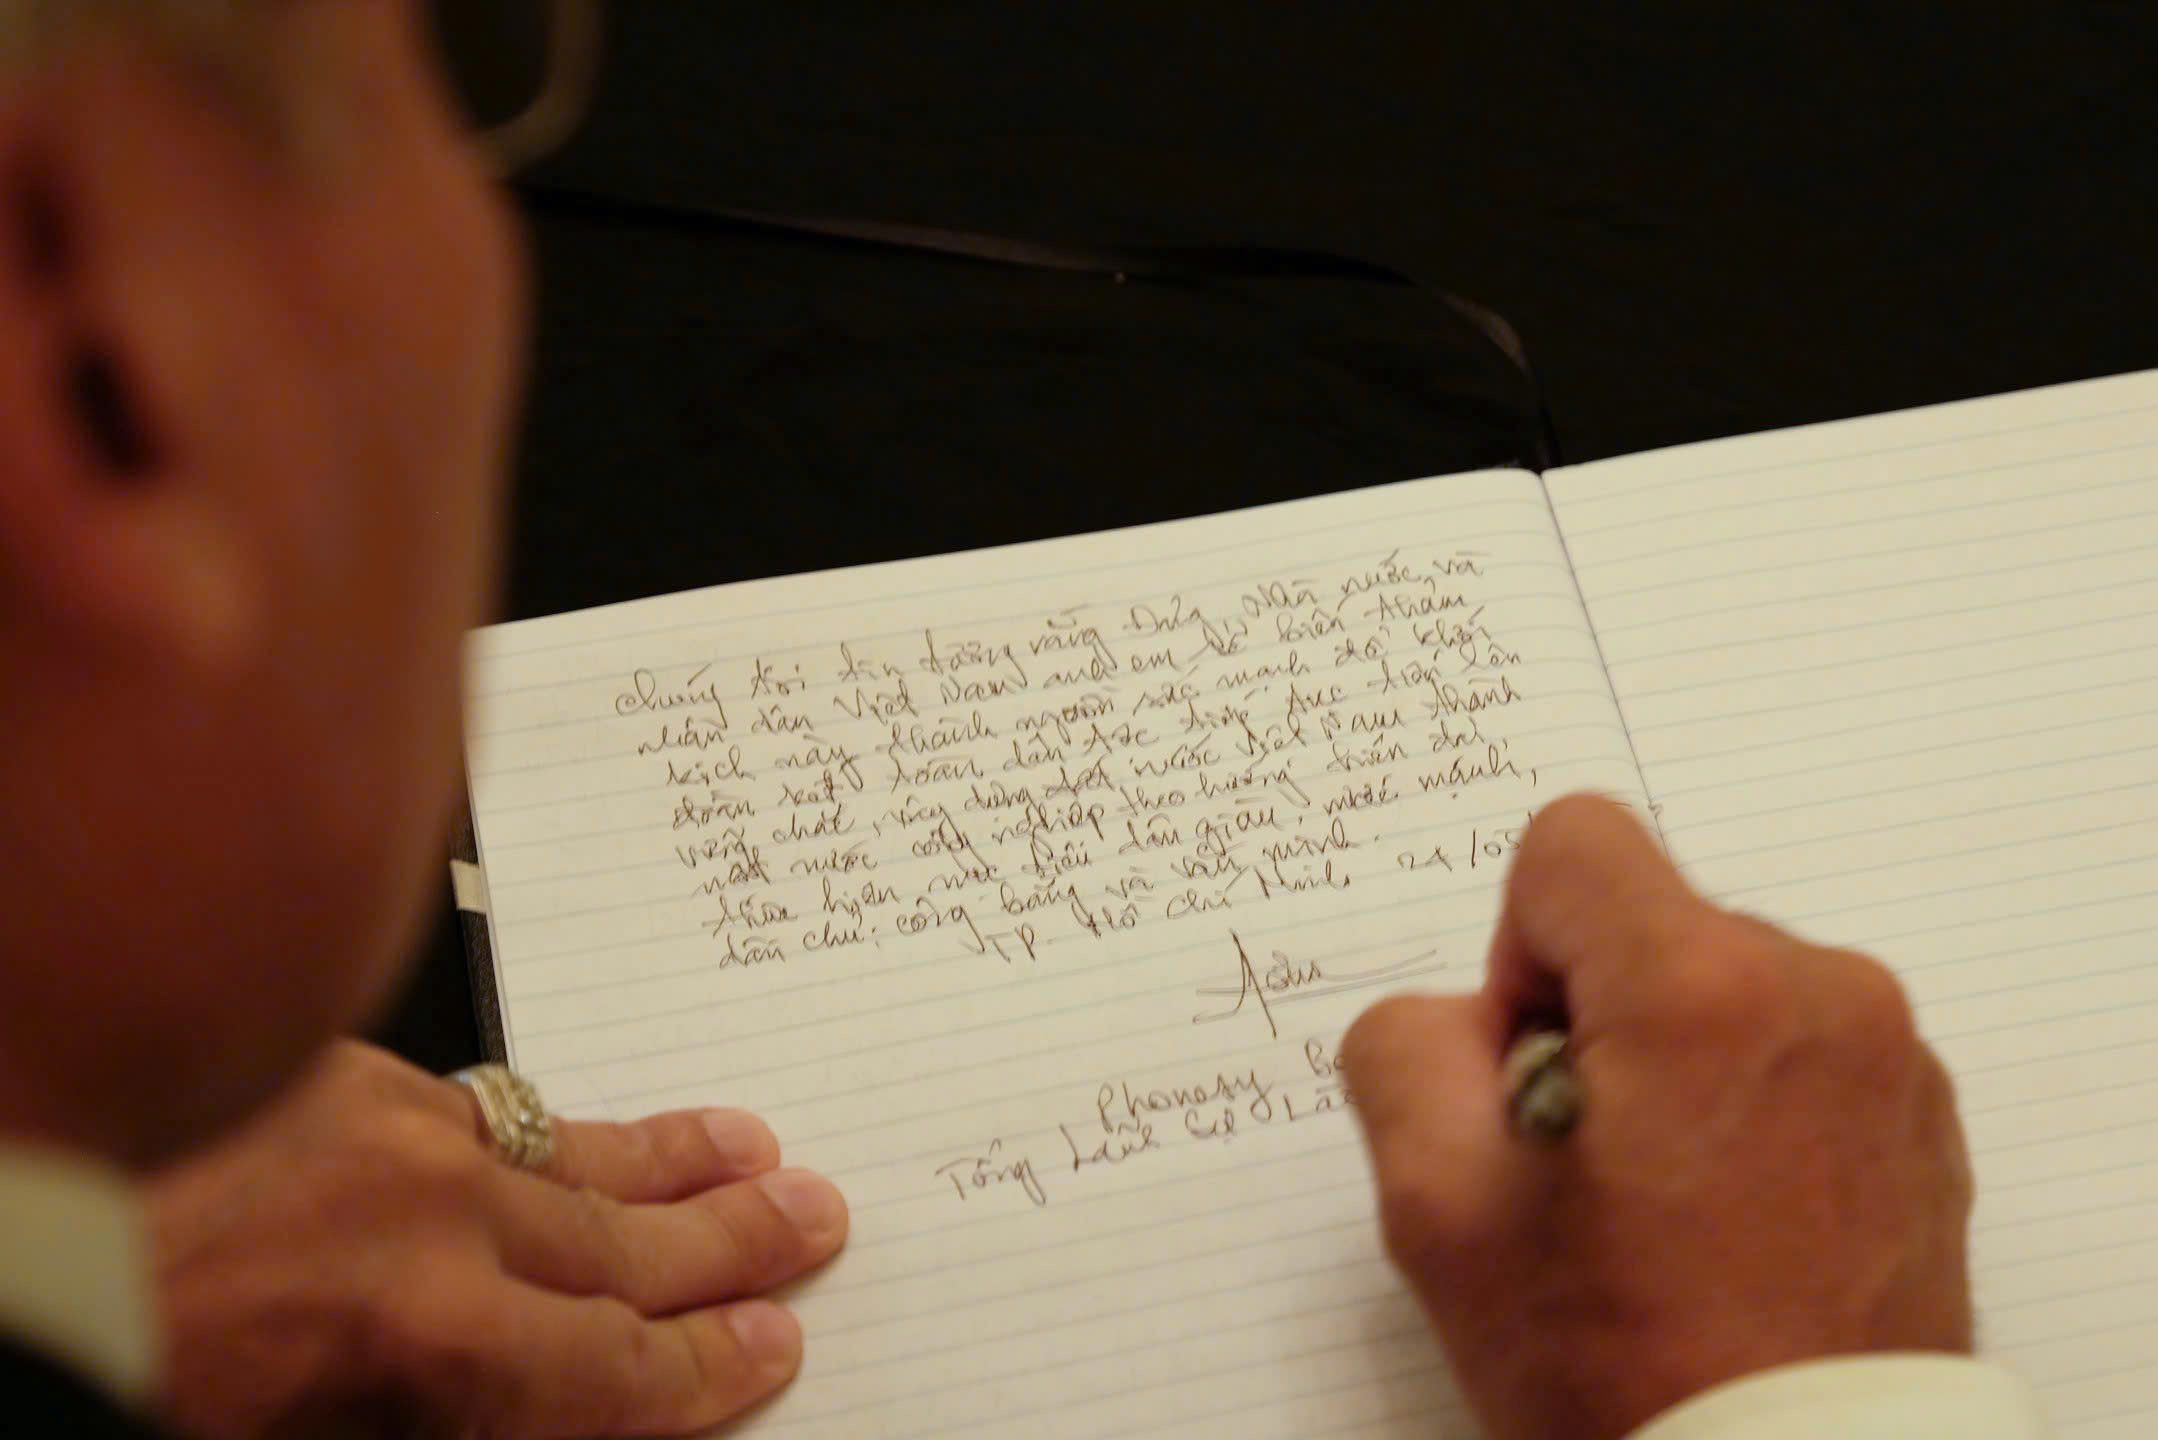 Chúng tôi tin tưởng rằng Đảng, Nhà nước và
nhân dân Việt Nam anh em sẽ biến thảm
kịch này thành nguồn sức mạnh để khối
đoàn kết toàn dân tộc tiếp tục tiến lên
vững chắc, xây dựng đất nước Việt Nam thành
một nước công nghiệp theo hướng hiện đại,
thực hiện mục tiêu dân giàu, nước mạnh,
dân chủ, công bằng và văn minh.
TP. Hồ Chí Minh 24/05
Phonesy
Tổng Lãnh sự Lào